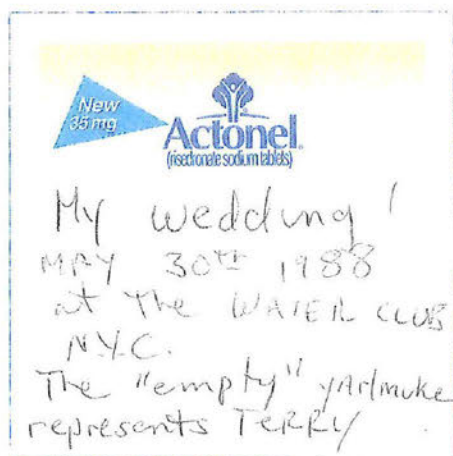 New
35 mg
Actonel®
(risedronate sodium tablets)
My wedding!
MAY 30TH 1988
at The WATER CLUB
N.Y.C.
The "empty" yArlmuke
represents TERRY